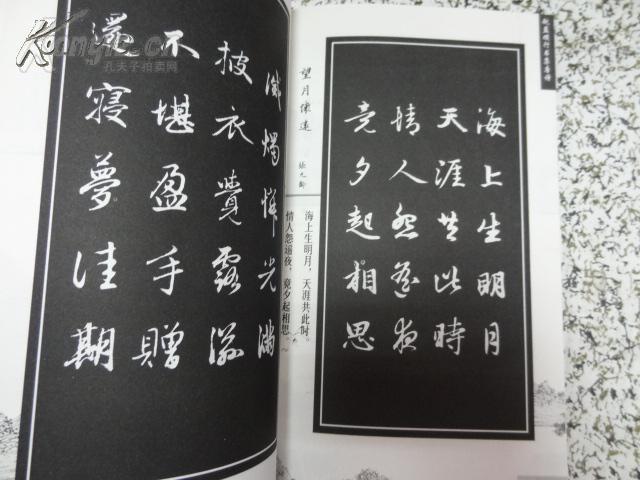 海上生明月
天涯共此時
情人怨遥夜
竟夕起相思
望月懷遠
張九齡
海上生明月，天涯共此时。
情人怨遥夜，竟夕起相思。
滅燭憐光滿
披衣覺露滋
不堪盈手贈
還寢夢佳期
孔夫子拍卖网